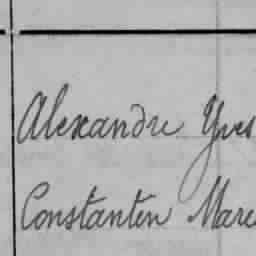 Alexandre Yves
Constanten Marc